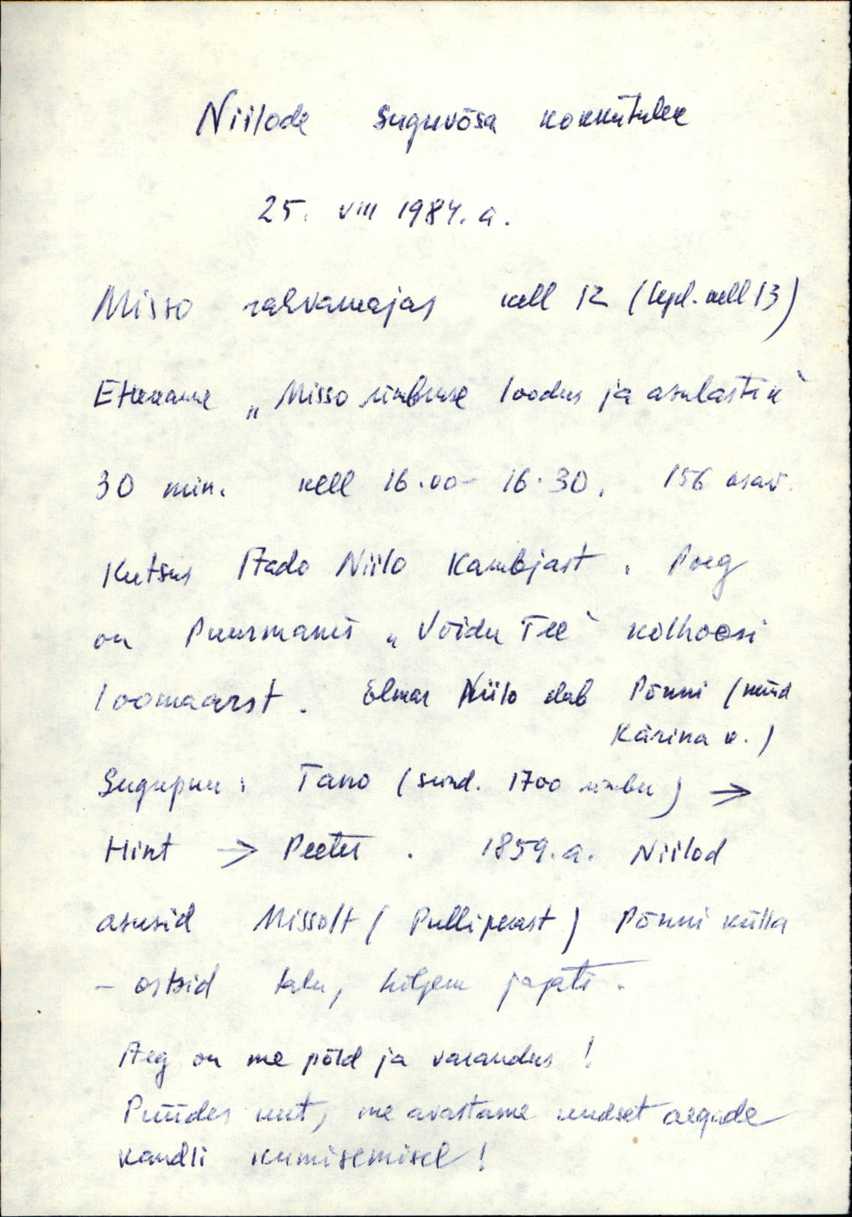 Niilode suguvõsa kokkutulek
25. VIII 1984. a.
Misso rahvamajas kell 12 (lõpl. kell 13)
Ettekanne „Misso ümbruse loodus ja asulastik"
30 min. kell 16.00 - 16.30. 156 osav.
Kutsus Aado Niilo Kambjast. Poeg
on Puurmanis „Võidu Tee" kolhoosi
loomaarst. Elmar Niilo elab Põnni (nüüd
Kärina k.)
Sugupuu: Tano (sünd. 1700 ümbru) →
Hint → Peeter. 1859. a. Niilod
asusid Missolt (Pullipeast) Põnni külla
- ostsid talu, hiljem jagati.
Aeg on me põld ja varandus!
Püüdes uut, me avastame muudset aegade
kandli kumisemisel!